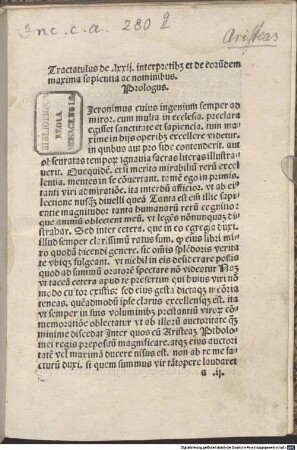 Inc. c. a. 280 g
Aristeas
Tractatulus de .lxxij. interpretibꝫ et de eorũdem
maxima sapientia ac nominibus.
Prologus.
BIBLIOTHECA
REGIA
MONACENSIS
Ieronimus cuius ingenium semper ad
miror. cum multa in ecclesia. preclara
egisset sanctitate et sapiencia. tum ma
xime in hijs operibꝫ excellere videtur.
in quibus aut pro fide contenderit. aut
obscuratas tempoꝝ ignauia sacras literas illustra
uerit.
lentia. mentes in se cõuertant.
viri admiratiõe. ita interdũ afficior. vt ab ei
lectione nusqꝫ diuelli queã Tanta est eñ illic sapi
entie magnitudo: tanta humanarũ rerũ cognitio:
que animũ oblectent meũ. vt leges nõnunqꝫ di
strahar. Sed inter cetera. que in eo egregia duxi.
illud semper clarissimũ ratus sum. ꝙ eius libri mi
ro quodã dicendi genere. sic oñis splẽdoris verita
te vbiqꝫ fulgeant. vt nichil in eis desiderare possis
quod ad summũ oratorẽ spectare nõ videatur
vt taceã cetera apud te presertim qui huius viri nõ
mo do cultor existis: sed eius gesta dictaqꝫ mẽoria
teneas. quẽadmodũ ipse clarus excellensqꝫ est. ita
vt semper in suis voluminibꝫ prestantiũ viroꝝ cõ
memoratiõe oblectatur vt ab illorũ auctoritate qꝫ
minime discedat Inter quos cũ Aristeaꝫ Ptholo
mei regis prepositũ magnificare. atqꝫ eius auctori
tatẽ vel maximã ducere nisus est. non ab re me fa
cturũ duxi. si quem summus vir tãtopere laudaret
a .ij.